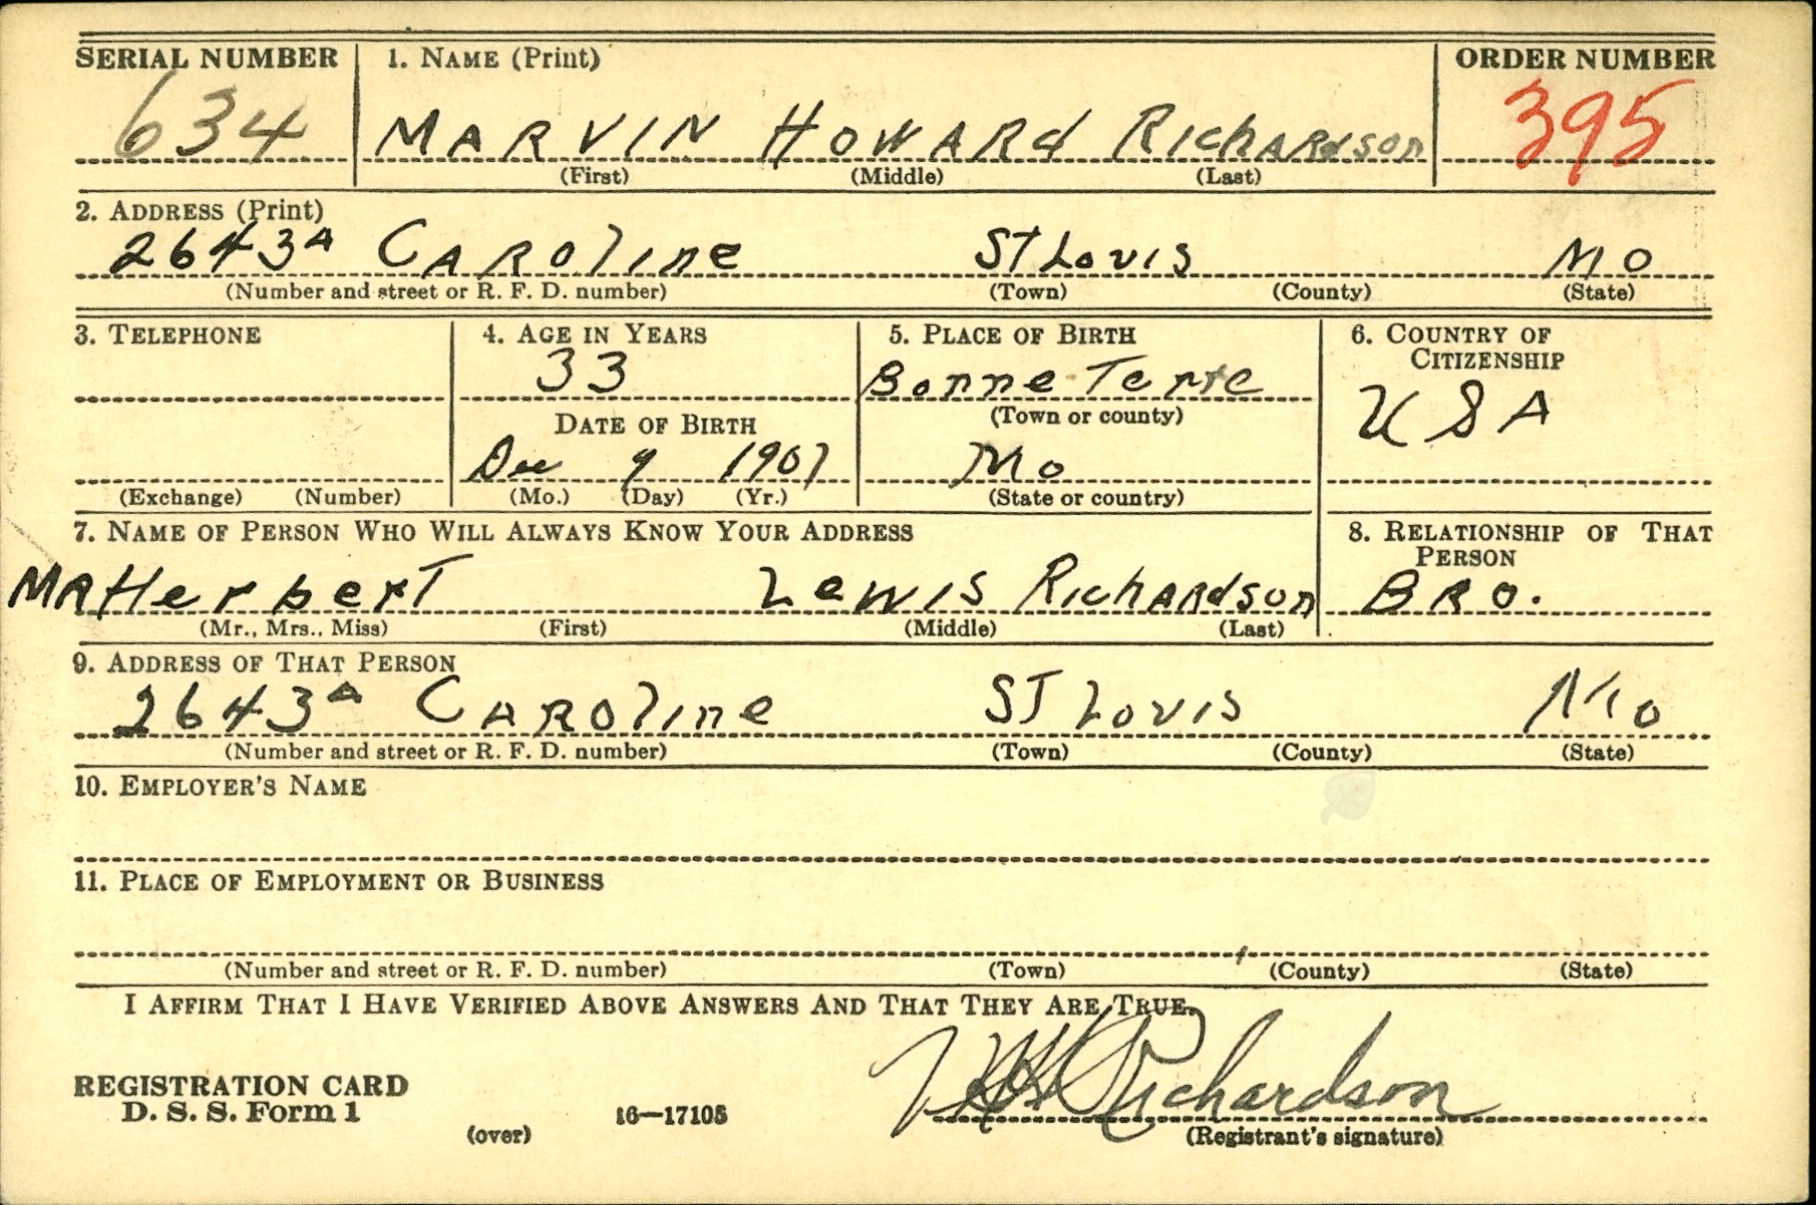 SERIAL NUMBER 1. NAME (Print) ORDER NUMBER
634 MARVIN HOWARd RichARdson 395
(First) (Middle) (Last)
2. ADDRESS (Print)
2643A CAROline ST Louis MO
(Number and street or R. F. D. number) (Town) (County) (State)
3. TELEPHONE 4. AGE IN YEARS 5. PLACE OF BIRTH 6. COUNTRY OF CITIZENSHIP
33 Bonne Terre USA
(Town or county)
DATE OF BIRTH
Dec 9 1907 Mo
(Exchange) (Number) (Mo.) (Day) (Yr.) (State or country)
7. NAME OF PERSON WHO WILL ALWAYS KNOW YOUR ADDRESS 8. RELATIONSHIP OF THAT PERSON
MR HerberT Lewis RichARdson BRO.
(Mr., Mrs., Miss) (First) (Middle) (Last)
9. ADDRESS OF THAT PERSON
2643A CAROline ST Louis Mo
(Number and street or R. F. D. number) (Town) (County) (State)
10. EMPLOYER'S NAME
11. PLACE OF EMPLOYMENT OR BUSINESS
(Number and street or R. F. D. number) (Town) (County) (State)
I AFFIRM THAT I HAVE VERIFIED ABOVE ANSWERS AND THAT THEY ARE TRUE.
REGISTRATION CARD
D. S. S. Form 1 16—17105 M H Richardson
(over) (Registrant's signature)